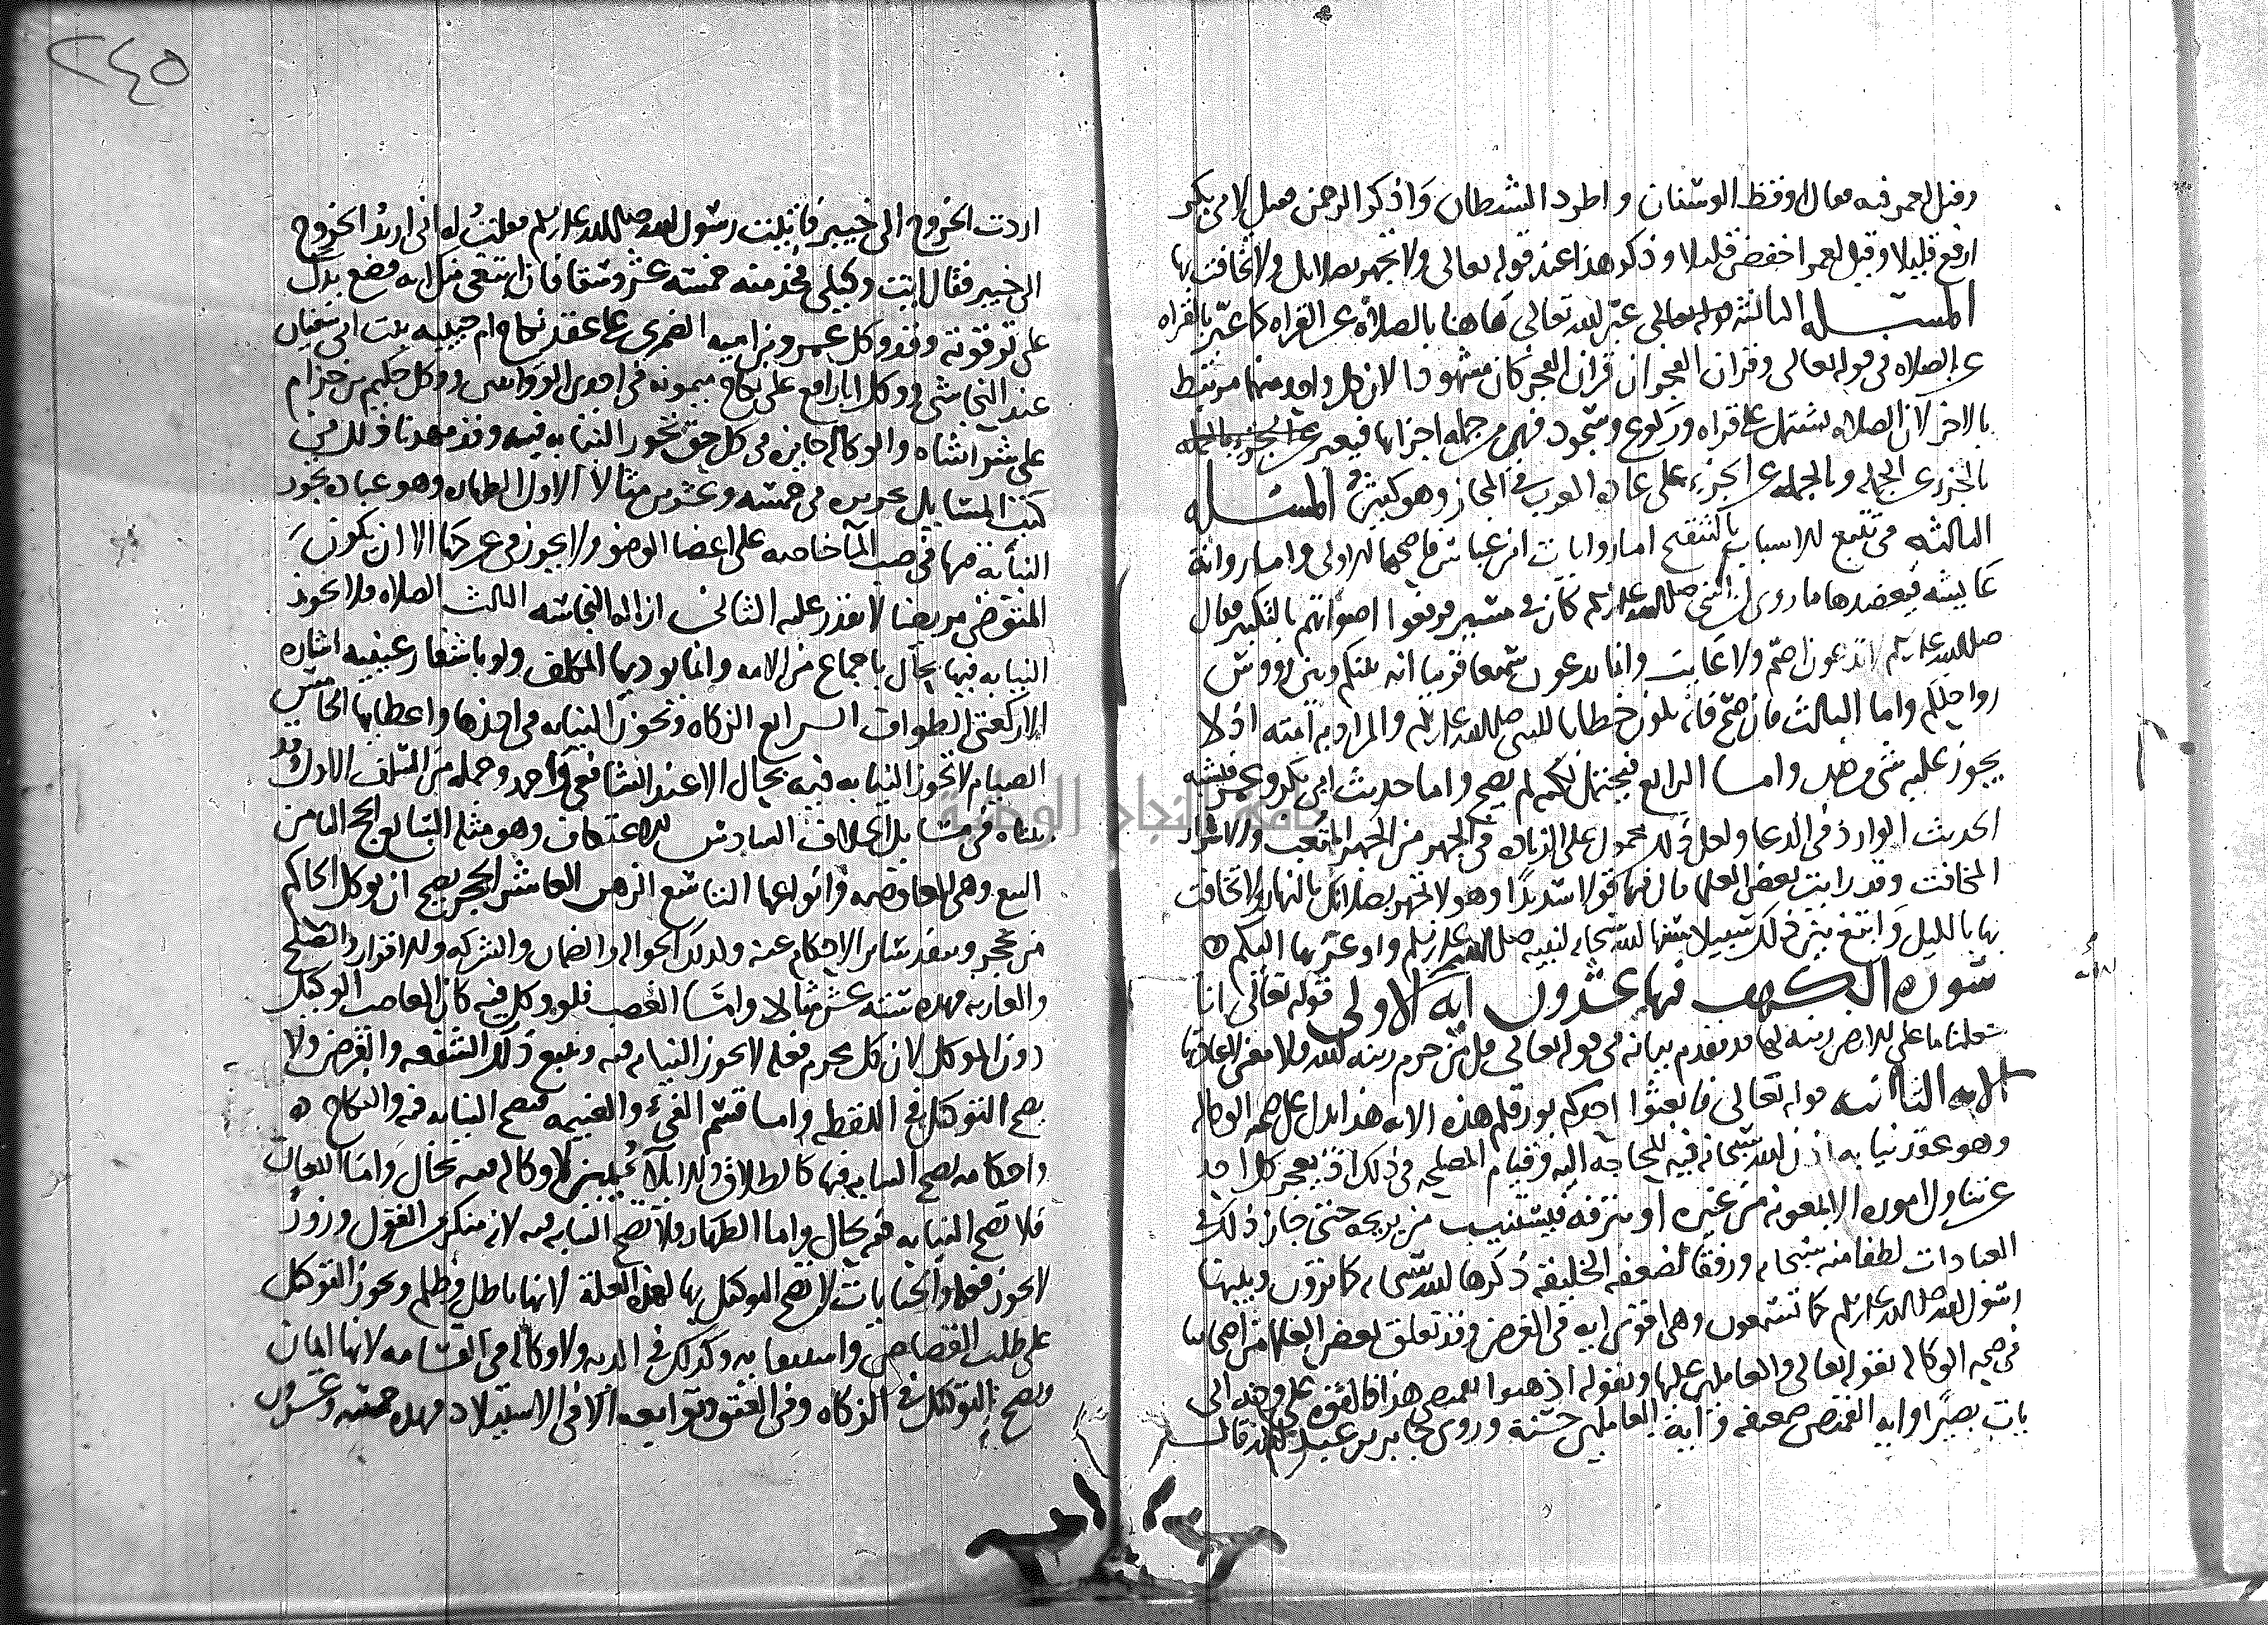 وقيل لعمر فيه فقال اوقظ الوسنان واطرد الشيطان واذكر الرحمن فقيل لابي بكر
ارفع قليلا وقيل لعمر اخفض قليلا وذكر هذا عند قوله تعالى ولا تجهر بصلاتك ولا تخافت بها
المسئله الثالثه قوله تعالى عبر الله تعالى هاهنا بالصلاه عن القراه كما عبر بالقراه
عن الصلاه في قوله تعالى وقران الفجر ان قران الفجر كان مشهودا لان كل واحد منهما مرتبط
بالاخر لان الصلاه تشتمل على قراه وركوع وسجود فهي من جمله اجزايها فيعبر عن الجزء بالجمله
بالجزء عن الجمله وبالجمله عن الجزء على عاده العرب في المجاز وهو كثير المسئله
الثالثه في تتبع الاسباب بالتنقيح اما روايات ابن عباس فاصحها الاولى واما رواية
عايشه فيعضدها ما روي ان النبي صلى الله عليه وسلم كان في مسير فرفعوا اصواتهم بالتكبير فقال
صلى الله عليه وسلم لا تدعون اصم ولا غايبا وانما تدعون سميعا قريبا انه بينكم وبين رووس
رواحلكم واما الثالث فان صح فانه يكون خطابا للنبي صلى الله عليه وسلم والمراد به امته اذ لا
يجوز عليه شي من هذا واما الرابع فيحتمل لكنه لم يصح واما حديث ابي بكر وعمر فيشبه
الحديث الوارد في الدعا ولعل ذلك محمول على الزياده في الجهر من الجهر المتعب والاسرار
المخافت وقد رايت بعض العلما قال فيها قولا سديدا وهو لا تجهر بصلاتك بالنهار ولا تخافت
بها بالليل وابتغ بين ذلك سبيلا سنها الله سبحانه لنبيه صلى الله عليه وسلم واوعز بها اليكم ه
سورة الكهف فيها عشرون اية الاولى قوله تعالى انا
جعلنا ما على الارض زينه لها قد تقدم بيانه في قوله تعالى قل من حرم زينه الله ولا معنى لاعادتها
الايه الثانيه قوله تعالى فابعثوا احدكم بورقكم هذه الايه هذا يدل على صحه الوكاله
وهو عقد نيابه اذن الله سبحانه فيه للحاجه اليه وقيام المصلحه في ذلك اذ يعجز كل احد
عن تناول اموره الا بمعونه من غيره او يترفه فيستنيب من يريحه حتى جاز ذلك في
العبادات لطفا منه سبحانه ورفقا لضعفه الخليقه ذكرها الله سبحانه كما ترون وبينها
رسول الله صلى الله عليه وسلم كما تسمعون وهي اقوى ايه في الغرض وقد تعلق بعض العلما من اصحابنا
في صحه الوكاله بقوله تعالى والعاملين عليها وبقوله اذهبوا بقميصي هذا فالقوه على وجه ابي
يات بصيرا وايه القميص ضعيفه وآية العاملين حسنة وروى جابر بن عبد الله قال
٢٤٥
اردت الخروج الى خيبر فاتيت رسول الله صلى الله عليه وسلم فقلت له اني اريد الخروج
الى خيبر فقال ايت وكيلي فخذ منه خمسه عشر وسقا فان ابتغى منك ايه فضع يدك
على ترقوته وقد وكل عمرو بن اميه الضمري على عقد نكاح ام حبيبه بنت ابي سفيان
عند النجاشي ووكل ابا رافع على نكاح ميمونه في احدى الروايتين ووكل حكيم بن حزام
على شرا شاه والوكاله جايزه في كل حق تجوز النيابه فيه وقد مهدنا ذلك في
كتب المسايل تحريره في خمسه وعشرين مثالا الاول الطهاره وهو عباده تجوز
النيابه منها في صب الماء خاصه على اعضا الوضو ولا يجوز في عركها الا ان يكون
المتوضي مريضا لا يقدر عليه الثاني ازاله النجاسه الثالث الصلاه ولا تجوز
النيابه فيها بحال باجماع من الامه وانما يوديها المكلف ولو باشفار عينيه اشاره
الا ركعتي الطواف الرابع الزكاه وتجوز النيابه في اخذها واعطايها الخامس
الصيام لا تجوز النيابه فيه بحال الا عند الشافعي واحمد وجمله من السلف الاول وقد
بيناه في مسايل الخلاف السادس الاعتكاف وهو مثله السابع الحج الثامن
البيع وهي المعاوضه وانواعها التاسع الرهن العاشر الحجر يصح ان يوكل الحاكم
من يحجر وينفذ ساير الاحكام عنه وكذلك الحواله والضمان والشركه والاقرار والصلح
والعاريه فهذه سته عشر مثالا واما الغصب فلو وكل فيه كان الغاصب الوكيل
دون الموكل لان كل محرم فعله لا تجوز النيابه فيه ويتبع ذلك الشفعه والقرض ولا
يصح التوكيل في اللقطه واما قسم الفيء والغنيمه فتصح النيابه فيه والنكاح ه
واحكامه تصح النيابه فيها كالطلاق والايلاء يمين لا وكاله فيه بحال واما اللعان
فلا تصح النيابه فيه بحال واما الظهار فلا تصح النيابه فيه لانه منكر من القول وزور
لا يجوز فعله والجنايات لا يصح التوكيل بها لهذه العلة لانها باطل وظلم ويجوز التوكيل
على طلب القصاص واستيفايه وكذلك في الديه ولا وكاله في القسامه لانها ايمان
ويصح التوكيل في الزكاه وفي العتق وتوابعه الا في الاستيلاد فهذه خمسه وعشرون